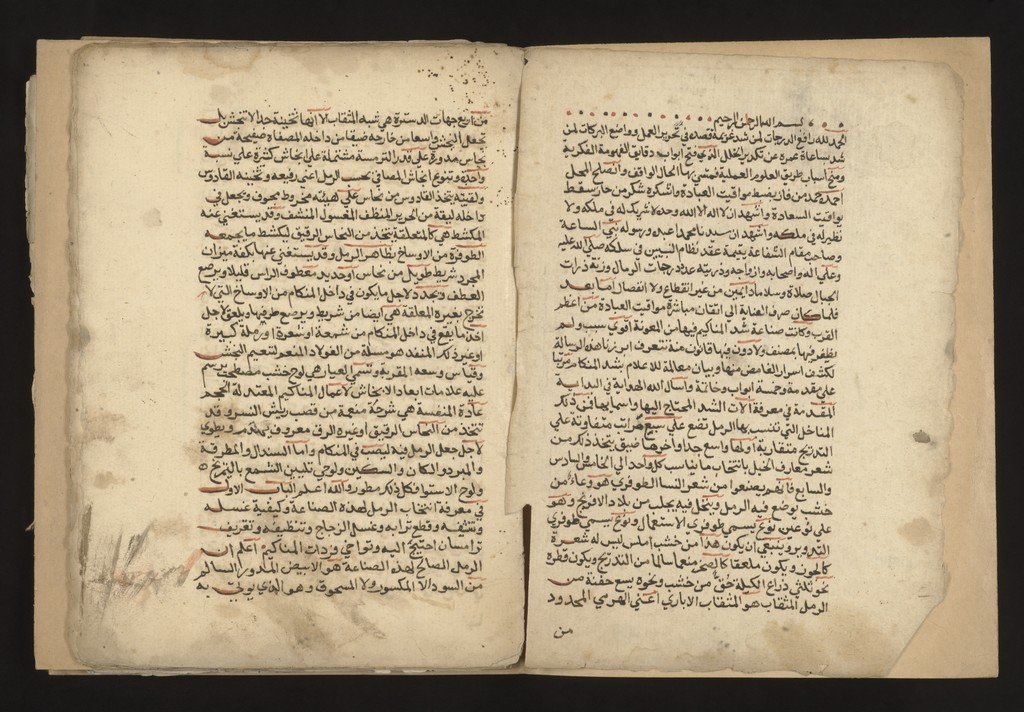 بسم الله الرحمن الرحيم
الحمد لله رافع الدرجات لمن شد عزيمة قصده في تحرير العمل وواضع البركات لمن
شد ساعاة عمره عن تكدير الخلل الذي فتح ابواب دقايق الفهومة الفكرية
ومنح اسباب طريق العلوم العملية فمشي بها الحال الواقف وانصلح المحل
احمده حمد من فاز بضبط مواقيت العبادة واشكره شكر من حاز بسقط
يواقيت السعادة واشهد ان لا اله الا الله وحده لا شريك له في ملكه ولا
نظير له في ملكه واشهد ان سيدنا محمدا عبده ورسوله نبي الساعة
وصاحب مقام الشفاعة يتيمة عقد نظام النبيين في سلكه صلى الله عليه
وعلى اله واصحابه وازواجه وذريته عدد درجات الرمال وزنة ذرات
الجبال صلاة وسلاما دايمين من غير انقطاع ولا انفصال اما بعد
فلما كان صرف العناية الى اتقان مباشرة مواقيت العبادة من اعظم
القرب وكانت صناعة شد المناكيم فيها من المعونة اقوي سبب ولم
يظفر فيها بمصنف ولا دون فيها قانون منه تتعرف ابرزنا هذه الرسالة
لكشف اسرار الغامض منها وبيان معالمة للاعلام بشد المنكام مرتبا
على مقدمة وخمسة ابواب وخاتمة واسال الله الهداية في البداية
المقدمة في معرفة الات الشد المحتاج اليها واسمايها فمن ذلك
المناخل التي تنسب بها الرمل تقع على سبع مراتب متفاوتة على
التدريج متقاربة اولها واسع جدا واخرها ضيق يتخذ ذلك من
شعر معارف الخيل بانتخاب ما يناسب كل واحد الي الخامس والسادس
والسابع فانهم يصنعوا من شعر النسا الطوفري هو وعاء من
خشب توضع فيه الرمل وينخل فيه يجلب من بلاد الافرنج وهو
على نوعين نوع يسمي طوفري الاستعمال ونوع يسمي طوفري
التدوير وينبغي ان يكون هذا من خشب املس ليس له شعرة
كالجون ويكون ملعقا كالصحن منعما سالما من التدريج ويكون قطره
نحو ثلثي ذراع الكيلة حق من خشب ونحوه يسع حفنة من
الرمل المثقاب هو المثقاب الاباري اعني الهرمي المحدود
من
من اربع جهات الدسترة هي شبه المثقاب الا انها ثخينة جدا لا تنخش بل
تجعل البخش واسعا من خارجه ضيقا من داخله المصفاة صفيحة من
نحاس مدورة على قدر الترمسة مشتملة على ابخاش كثيرة على نسبة
واحدة وتنوع ابخاش المصافي بحسب الرمل اعني رفيعه وثخينه القادوس
ولفيته يتخذ القادوس من نحاس على هيئة مخروط مجوف ويجعل في
داخله ليقة من الحرير المنظف المغسول المنشف وقد يستغني عنه
المكشط هي كالملعقة يتخذ من النحاس الرقيق ليكشط ما يجمعه
الطوفرة من الاوساخ بظاهر الرمل وقد يستغني عنها بكفة ميزان
المجرد شريط طويل من نحاس او حديد معطوف الراس قليلا ويرصع
العطف ويحدد لاجل ما يكون في داخل المنكام من الاوساخ التي لا
تخرج بغيره المعلقة هي ايضا من شريط ويرصع طرفها ويلعق لاجل
اخذ ما يقع في داخل المنكام من شمعة او شعرة او رملة كبيرة
او غير ذلك المنفد هو مسلة من الفولاد المنعم لتنعيم البخش
وقياس وسعه المقربة وتسمي العيار هي لوح خشب مصطحب ترسم
عليه علامات ابعاد الابخاش لاعمال المناكيم المعتدلة الحجم
عادة المنفسة هي شرخة منعمة من قصب ريش النسر وقد
تتخذ من النحاس الرقيق او غيره الرق معروف ويطوي
لاجل جعل الرمل فيه ليصب في المنكام واما السندال والمطرقة
والمبرد والكان والسكين ولوحي تليين الشمع بالتمريخ
ولوح الاستوا فكل ذلك مطور والله اعلم الباب الاول
في معرفة انتخاب الرمل لهذه الصناعة وكيفية غسله
وتنشيفه وقطع ترابه وغسل الزجاج وتنظيفه وتعريف
ترامسان احتيج اليه وتواخي فردات المناكيم اعلم ان
الرمل الصالح لهذه الصناعة هو الابيض المدور السالم
من السود الا المكسور ولا المسحوق وهو الذي يوتي به